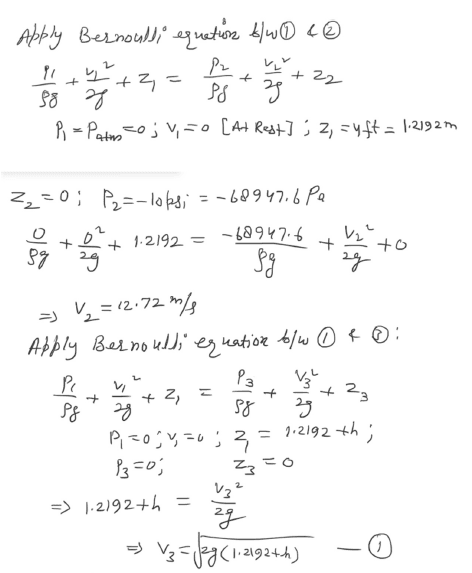 Apply Bernoulli equation b/w ① & ②
P₁/ρg + V₁²/2g + Z₁ = P₂/ρg + V₂²/2g + Z₂
P₁ = Patm = 0 ; V₁ = 0 [At Rest] ; Z₁ = 4ft = 1.2192m
Z₂ = 0 ; P₂ = -10psi = -68947.6 Pa
0/ρg + 0²/2g + 1.2192 = -68947.6/ρg + V₂²/2g + 0
⇒ V₂ = 12.72 m/s
Apply Bernoulli equation b/w ① & ③ :
P₁/ρg + V₁²/2g + Z₁ = P₃/ρg + V₃²/2g + Z₃
P₁ = 0 ; V₁ = 0 ; Z₁ = 1.2192 + h ;
P₃ = 0 ; Z₃ = 0
⇒ 1.2192 + h = V₃²/2g
⇒ V₃ = √2g(1.2192+h) — ①